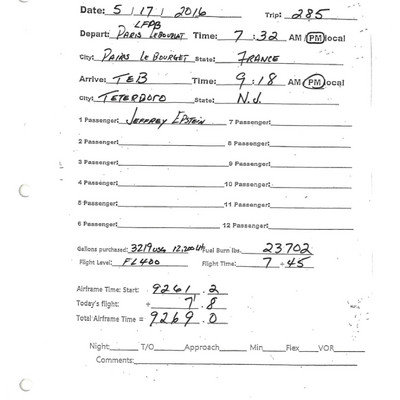 Date: 5 | 17 | 2016 Trip: 285
LFPB
Depart: Paris LeBourget Time: 7 : 32 AM / PM local
City: Paris Le Bourget State: France
Arrive: TEB Time: 9 : 18 AM PM local
City: Teterboro State: N.J.
1 Passenger: Jeffrey Epstein 7 Passenger:
2 Passenger: 8 Passenger:
3 Passenger: 9 Passenger:
4 Passenger: 10 Passenger:
5 Passenger: 11 Passenger:
6 Passenger: 12 Passenger:
Gallons purchased: 3219 USG 12,200 Lt Fuel Burn lbs. 23702
Flight Level: FL400 Flight Time: 7 + 45
Airframe Time: Start: 9261 . 2
Today's flight: + 7 . 8
Total Airframe Time = 9269 . 0
Night: T/O Approach Min Flex VOR
Comments: